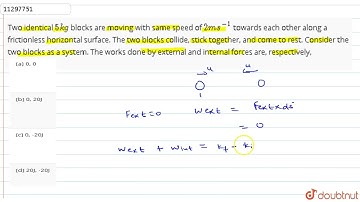 11297751
Two identical 5 kg blocks are moving with same speed of 2ms⁻¹ towards each other along a
frictionless horizontal surface. The two blocks collide, stick together, and come to rest. Consider the
two blocks as a system. The works done by external and internal forces are, respectively,
(a) 0, 0
(b) 0, 20J
(c) 0, -20J
(d) 20J, -20J
u u
Fext=0 Wext = Fext×ds
= 0
Wext + Wint = kf - ki
doubtnut